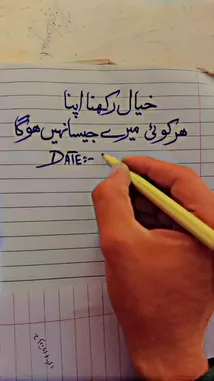 خیال رکھنا اپنا
ھر کوئی میرے جیسا نہیں ھوگا
DATE:-